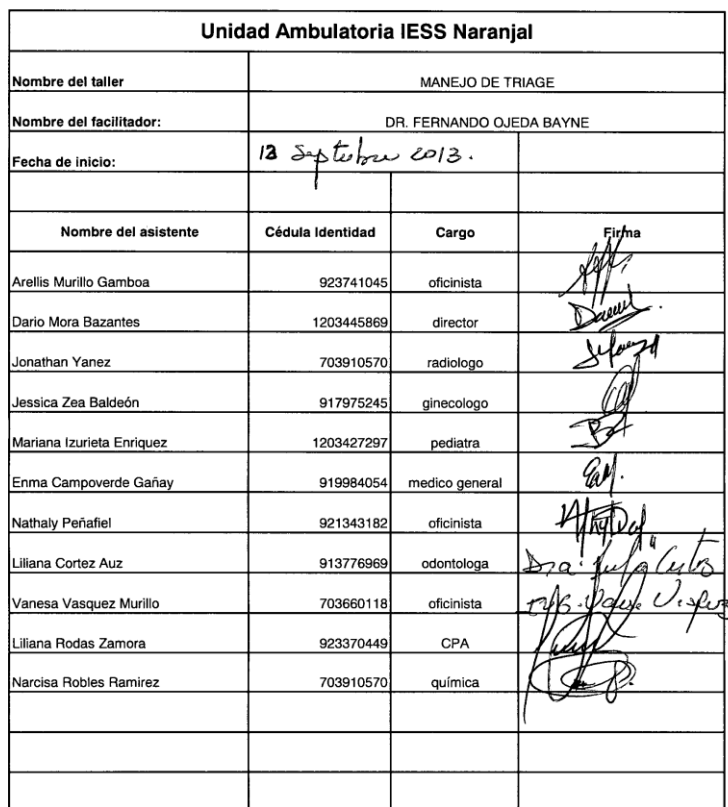 Unidad Ambulatoria IESS Naranjal
Nombre del taller MANEJO DE TRIAGE
Nombre del facilitador: DR. FERNANDO OJEDA BAYNE
Fecha de inicio: 13 Septiembre 2013.
Nombre del asistente Cédula Identidad Cargo Firma
Arellis Murillo Gamboa 923741045 oficinista
Dario Mora Bazantes 1203445869 director
Jonathan Yanez 703910570 radiologo
Jessica Zea Baldeón 917975245 ginecologo
Mariana Izurieta Enriquez 1203427297 pediatra
Enma Campoverde Gañay 919984054 medico general
Nathaly Peñafiel 921343182 oficinista
Liliana Cortez Auz 913776969 odontologa Dra.
Vanesa Vasquez Murillo 703660118 oficinista
Liliana Rodas Zamora 923370449 CPA
Narcisa Robles Ramirez 703910570 química